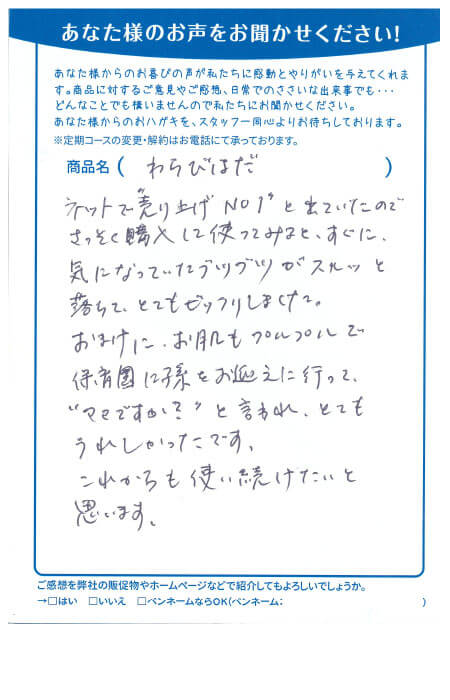 あなた様のお声をお聞かせください!
あなた様からのお喜びの声が私たちに感動とやりがいを与えてくれま
す。商品に対するご意見やご感想、日常でのささいな出来事でも・・・
どんなことでも構いませんので私たちにお聞かせください。
あなた様からのおハガキを、スタッフ一同心よりお待ちしております。
※定期コースの変更・解約はお電話にて承っております。
商品名( わらびはだ )
ネットで“売り上げNO1”と出ていたので
さっそく購入して使ってみると、すぐに、
気になっていたブツブツがスルッと
落ちて、とてもビックリしました。
おまけに、お肌もプルプルで
保育園に孫をお迎えに行って、
“ママですか?”と言われ、とても
うれしかったです。
これからも使い続けたいと
思います。
ご感想を弊社の販促物やホームページなどで紹介してもよろしいでしょうか。
→□はい □いいえ □ペンネームならOK(ペンネーム: )